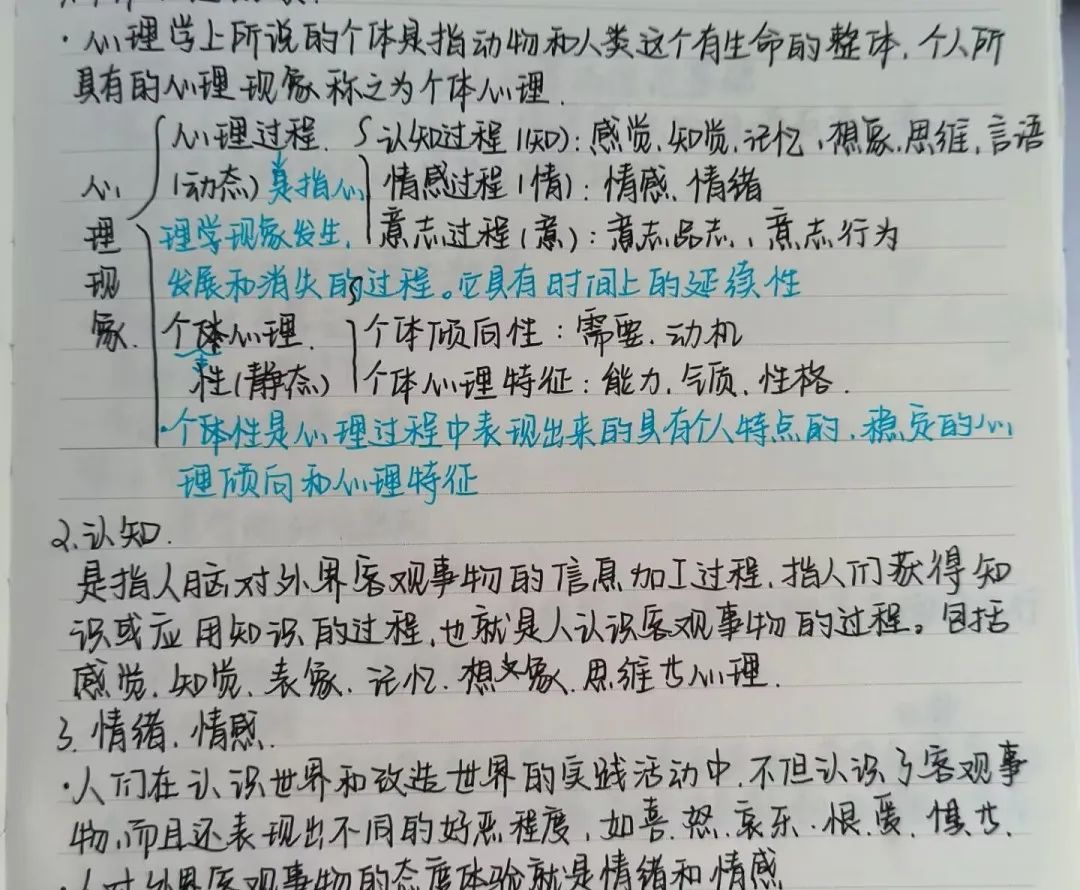 ·心理学上所说的个体是指动物和人类这个有生命的整体，个人所
具有的心理现象称之为个体心理.
心理现象.
心理过程.
(动态)是指心
理学现象发生,
发展和消失的过程。它具有时间上的延续性
认知过程(知)：感觉、知觉、记忆、想象、思维、言语
情感过程(情)：情感、情绪
意志过程(意)：意志品志、意志行为
个体心理.
性(静态)
个体倾向性：需要、动机
个体心理特征：能力、气质、性格.
·个体性是心理过程中表现出来的具有个人特点的、稳定的心
理倾向和心理特征
2.认知.
是指人脑对外界客观事物的信息加工过程，指人们获得知
识或应用知识的过程，也就是人认识客观事物的过程。包括
感觉、知觉、表象、记忆、想象、思维等心理.
3.情绪、情感.
·人们在认识世界和改造世界的实践活动中，不但认识了客观事
物，而且还表现出不同的好恶程度，如喜、怒、哀、乐、恨、爱、惧等.
·人对外界客观事物的态度体验就是情绪和情感